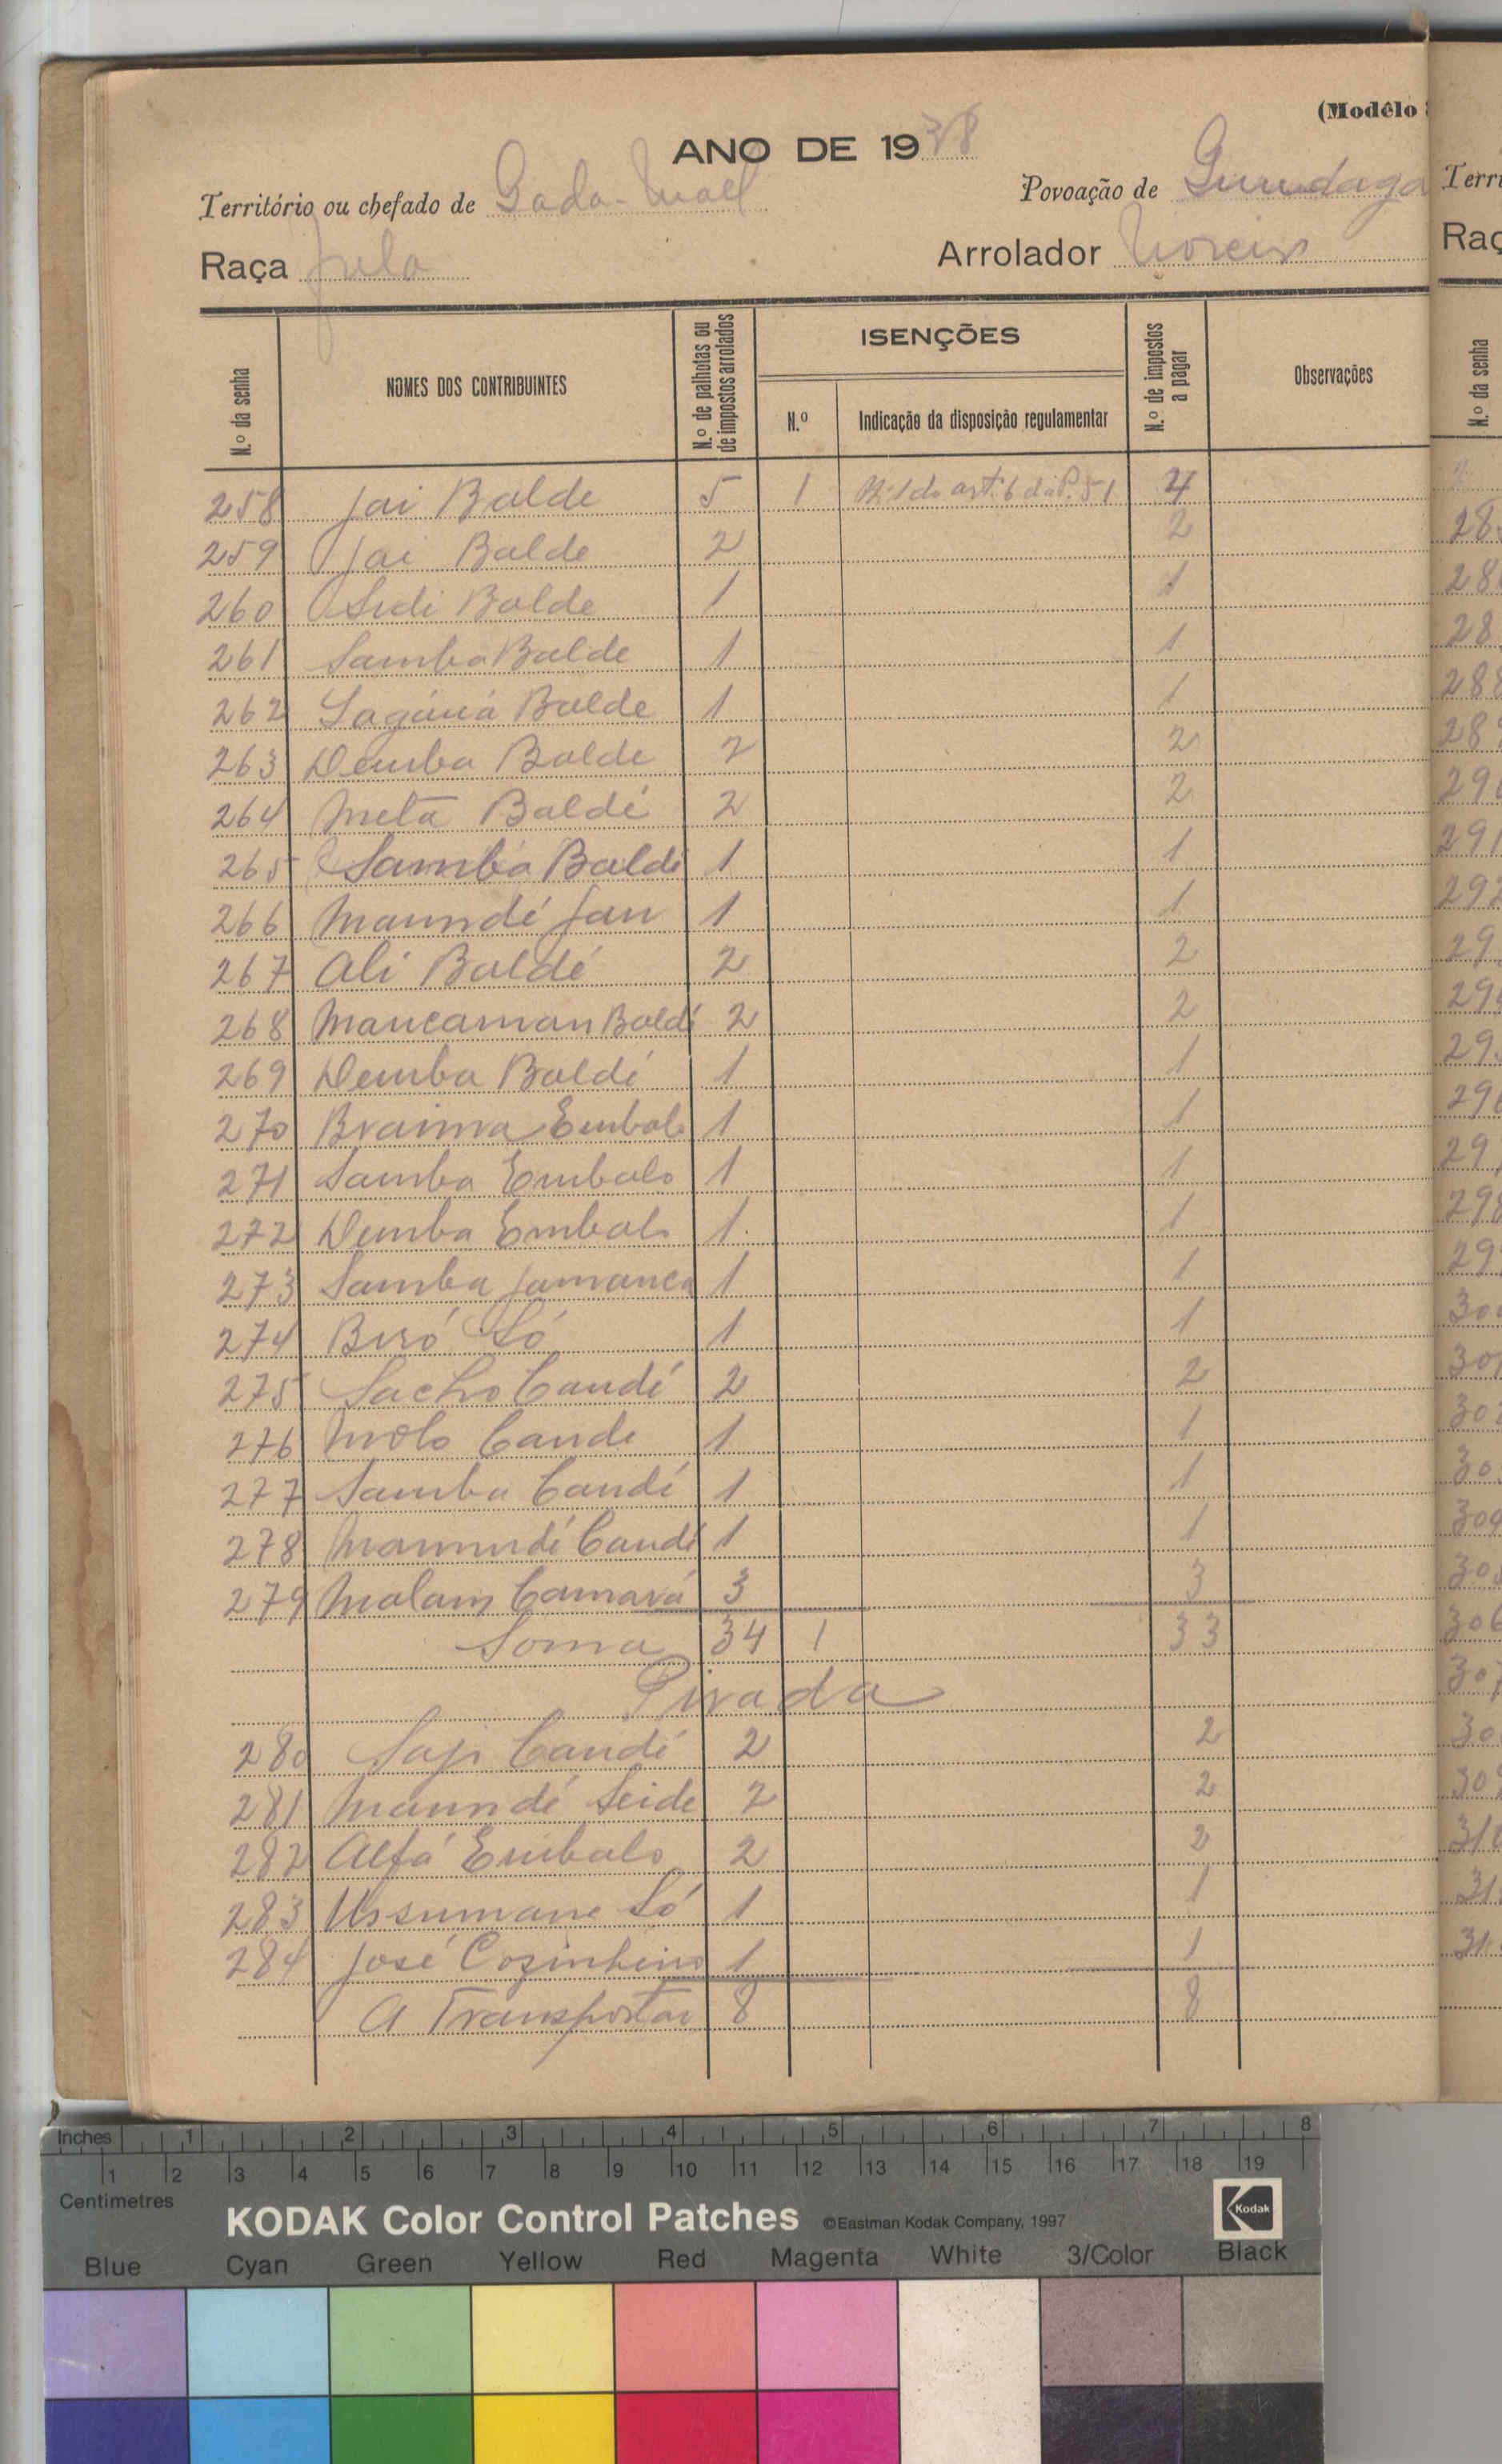 (Modêlo
ANO DE 1938
Território ou chefado de Gada-Mael Povoação de Gundaga
Raça Fula Arrolador Moreira
N.º da senha
NOMES DOS CONTRIBUINTES
N.º de palhotas ou de impostos arrolados
ISENÇÕES
N.º
Indicação da disposição regulamentar
N.º de impostos a pagar
Observações
258 Jai Balde 5 1 Nº 1 do artº 6 da P. 51 4
259 Jai Balde 2 2
260 Sidi Balde 1 1
261 Samba Balde 1 1
262 Balde 1 1
263 Demba Balde 2 2
264 Meta Baldé 2 2
265 Samba Baldé 1 1
266 Maundé Jau 1 1
267 Ali Baldé 2 2
268 Maucaman Baldé 2 2
269 Demba Baldé 1 1
270 Braima Embalo 1 1
271 Samba Embalo 1 1
272 Demba Embalo 1 1
273 Samba Jamanca 1 1
274 Biró Só 1 1
275 Sacho Candé 2 2
276 Molo Cande 1 1
277 Samba Candé 1 1
278 Maundé Candé 1 1
279 Malam Camará 3 3
Soma 34 1 33
Pirada
280 Saji Candé 2 2
281 Maundé Seide 2 2
282 Alfá Embalo 2 2
283 Ussumane Só 1 1
284 José Cozinheiro 1 1
A Transportar 8 8
Inches 1 2 3 4 5 6 7 8
1 2 3 4 5 6 7 8 9 10 11 12 13 14 15 16 17 18 19
Centimetres
KODAK Color Control Patches ©Eastman Kodak Company, 1997 Kodak
Blue Cyan Green Yellow Red Magenta White 3/Color Black
Terri
Raç
N.º da senha